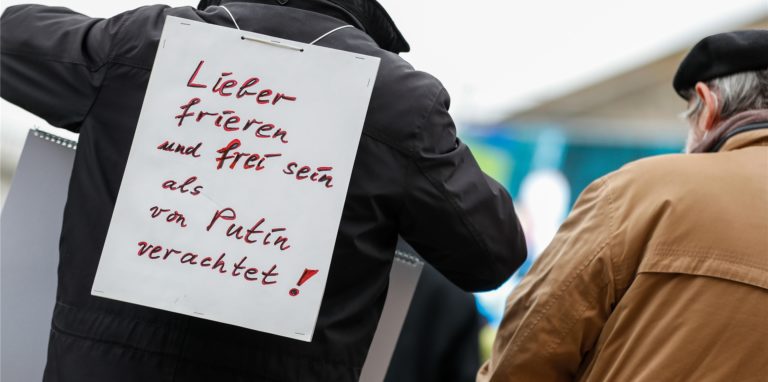 Lieber
frieren
und frei sein
als
von Putin
verachtet!